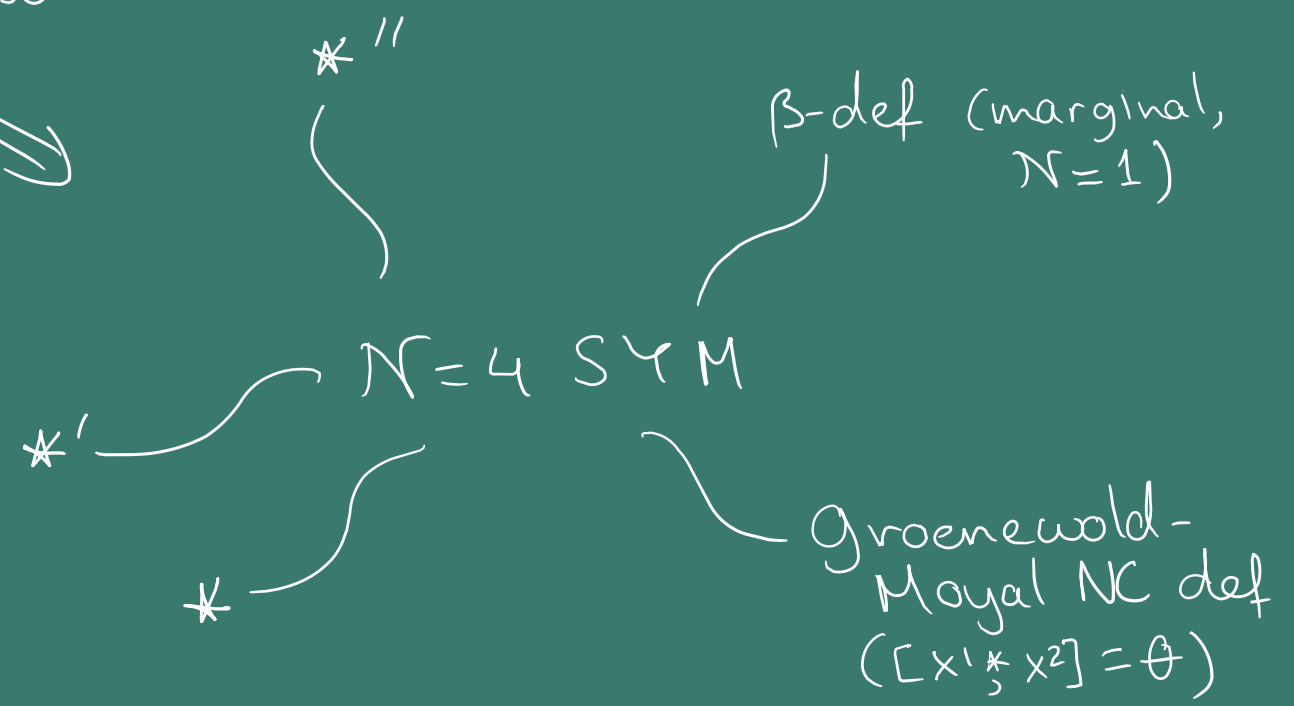 ★ ″
β-def (marginal,
N=1)
N=4 SYM
★ ′
★
Groenewold-
Moyal NC def
([x¹ ⋆, x²] = θ)